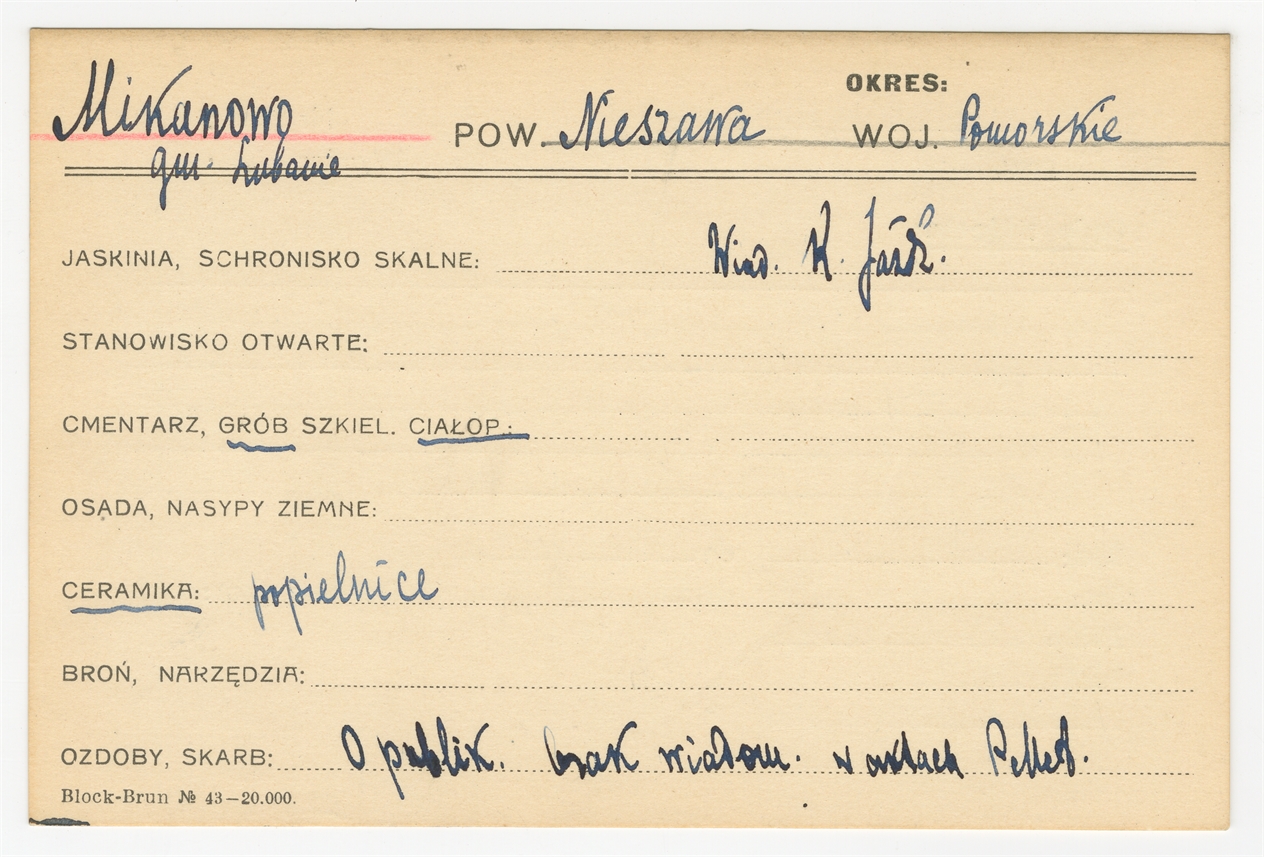 OKRES:
Mikanowo POW. Nieszawa WOJ. Pomorskie
gm. Lubanie
JASKINIA, SCHRONISKO SKALNE: Wiad. K.
STANOWISKO OTWARTE:
CMENTARZ, GRÓB SZKIEL. CIAŁOP.:
OSADA, NASYPY ZIEMNE:
CERAMIKA: popielnice
BROŃ, NARZĘDZIA:
OZDOBY, SKARB: O publik. brak wiadom. w aktach
Block-Brun № 43—20.000.